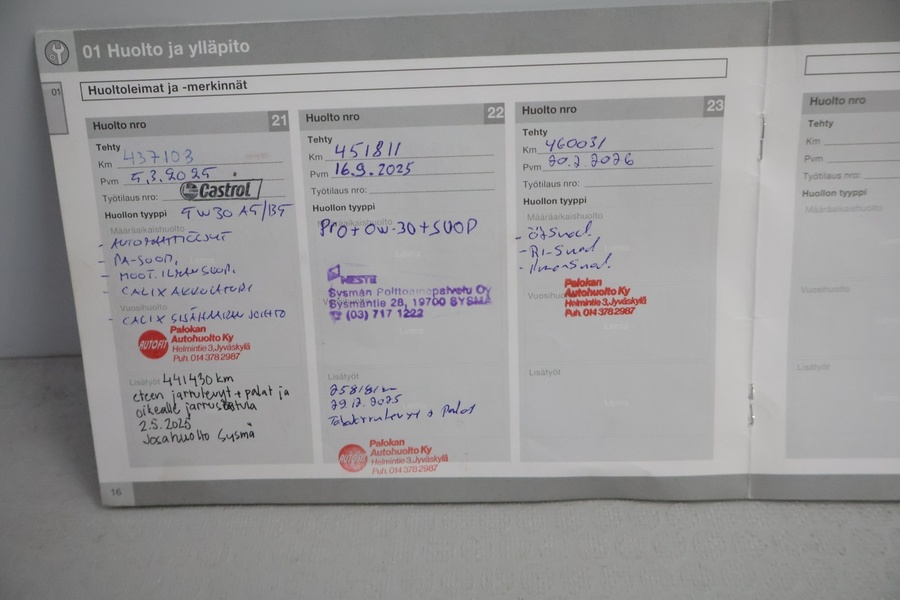 01 Huolto ja ylläpito
01
Huoltoleimat ja -merkinnät
Huolto nro 21
Tehty
Km 437103
Pvm 5.3.2025
Castrol
Työtilaus nro:
Huollon tyyppi 5W30 A5/B5
Määräaikaishuolto
- MOOT. ILMANSUOD.
- CALIX AKKULATURI
Vuosihuolto
- CALIX SISÄHAARAN JOHTO
AUTOFIT
Palokan
Autohuolto Ky
Helmintie 3, Jyväskylä
Puh. 014 378 2987
Lisätyöt 441430 km
eteen jarrulevyt + palat ja
oikealle jarrusatula
2.5.2025
Josahuolto Sysmä
Huolto nro 22
Tehty
Km 451811
Pvm 16.9.2025
Työtilaus nro:
Huollon tyyppi
Määräaikaishuolto
Pro + 0W-30 + SUOD
NESTE
Sysmän Polttoainepalvelu Oy
Sysmäntie 28, 19700 SYSMÄ
(03) 717 1222
Lisätyöt
29.12.2025
Takajarrulevyt + Palat
AUTOFIT
Palokan
Autohuolto Ky
Helmintie 3, Jyväskylä
Puh. 014 378 2987
Huolto nro 23
Tehty
Km 460031
Pvm 20.2.2026
Työtilaus nro:
Huollon tyyppi
Määräaikaishuolto
- Öljsuod.
- Ri-Suod
- Ilman Suod.
Vuosihuolto
Palokan
Autohuolto Ky
Helmintie 3, Jyväskylä
Puh. 014 378 2987
Lisätyöt
16
Huolto nro
Tehty
Km
Pvm
Työtilaus nro:
Huollon tyyppi
Määräaikaishuolto
Vuosihuolto
Lisätyöt